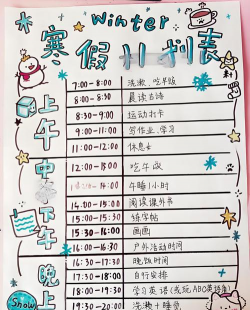 Winter
寒假计划表
上午
7:00-8:00 洗漱、吃早饭
8:00-8:30 晨读古诗
8:30-9:00 运动打卡
9:00-11:00 写作业、学习
11:00-12:00 休息
中午
12:00-13:00 吃午饭
午睡1小时
下午
14:00-15:00 阅读课外书
15:00-15:30 练字帖
15:30-16:00 画画
16:00-16:30 户外活动时间
晚上
16:30-17:30 晚饭时间
17:30-18:00 自行安排
18:00-19:30 学习英语(或玩ABC英语角)
19:30-20:00 洗漱+睡觉
Show